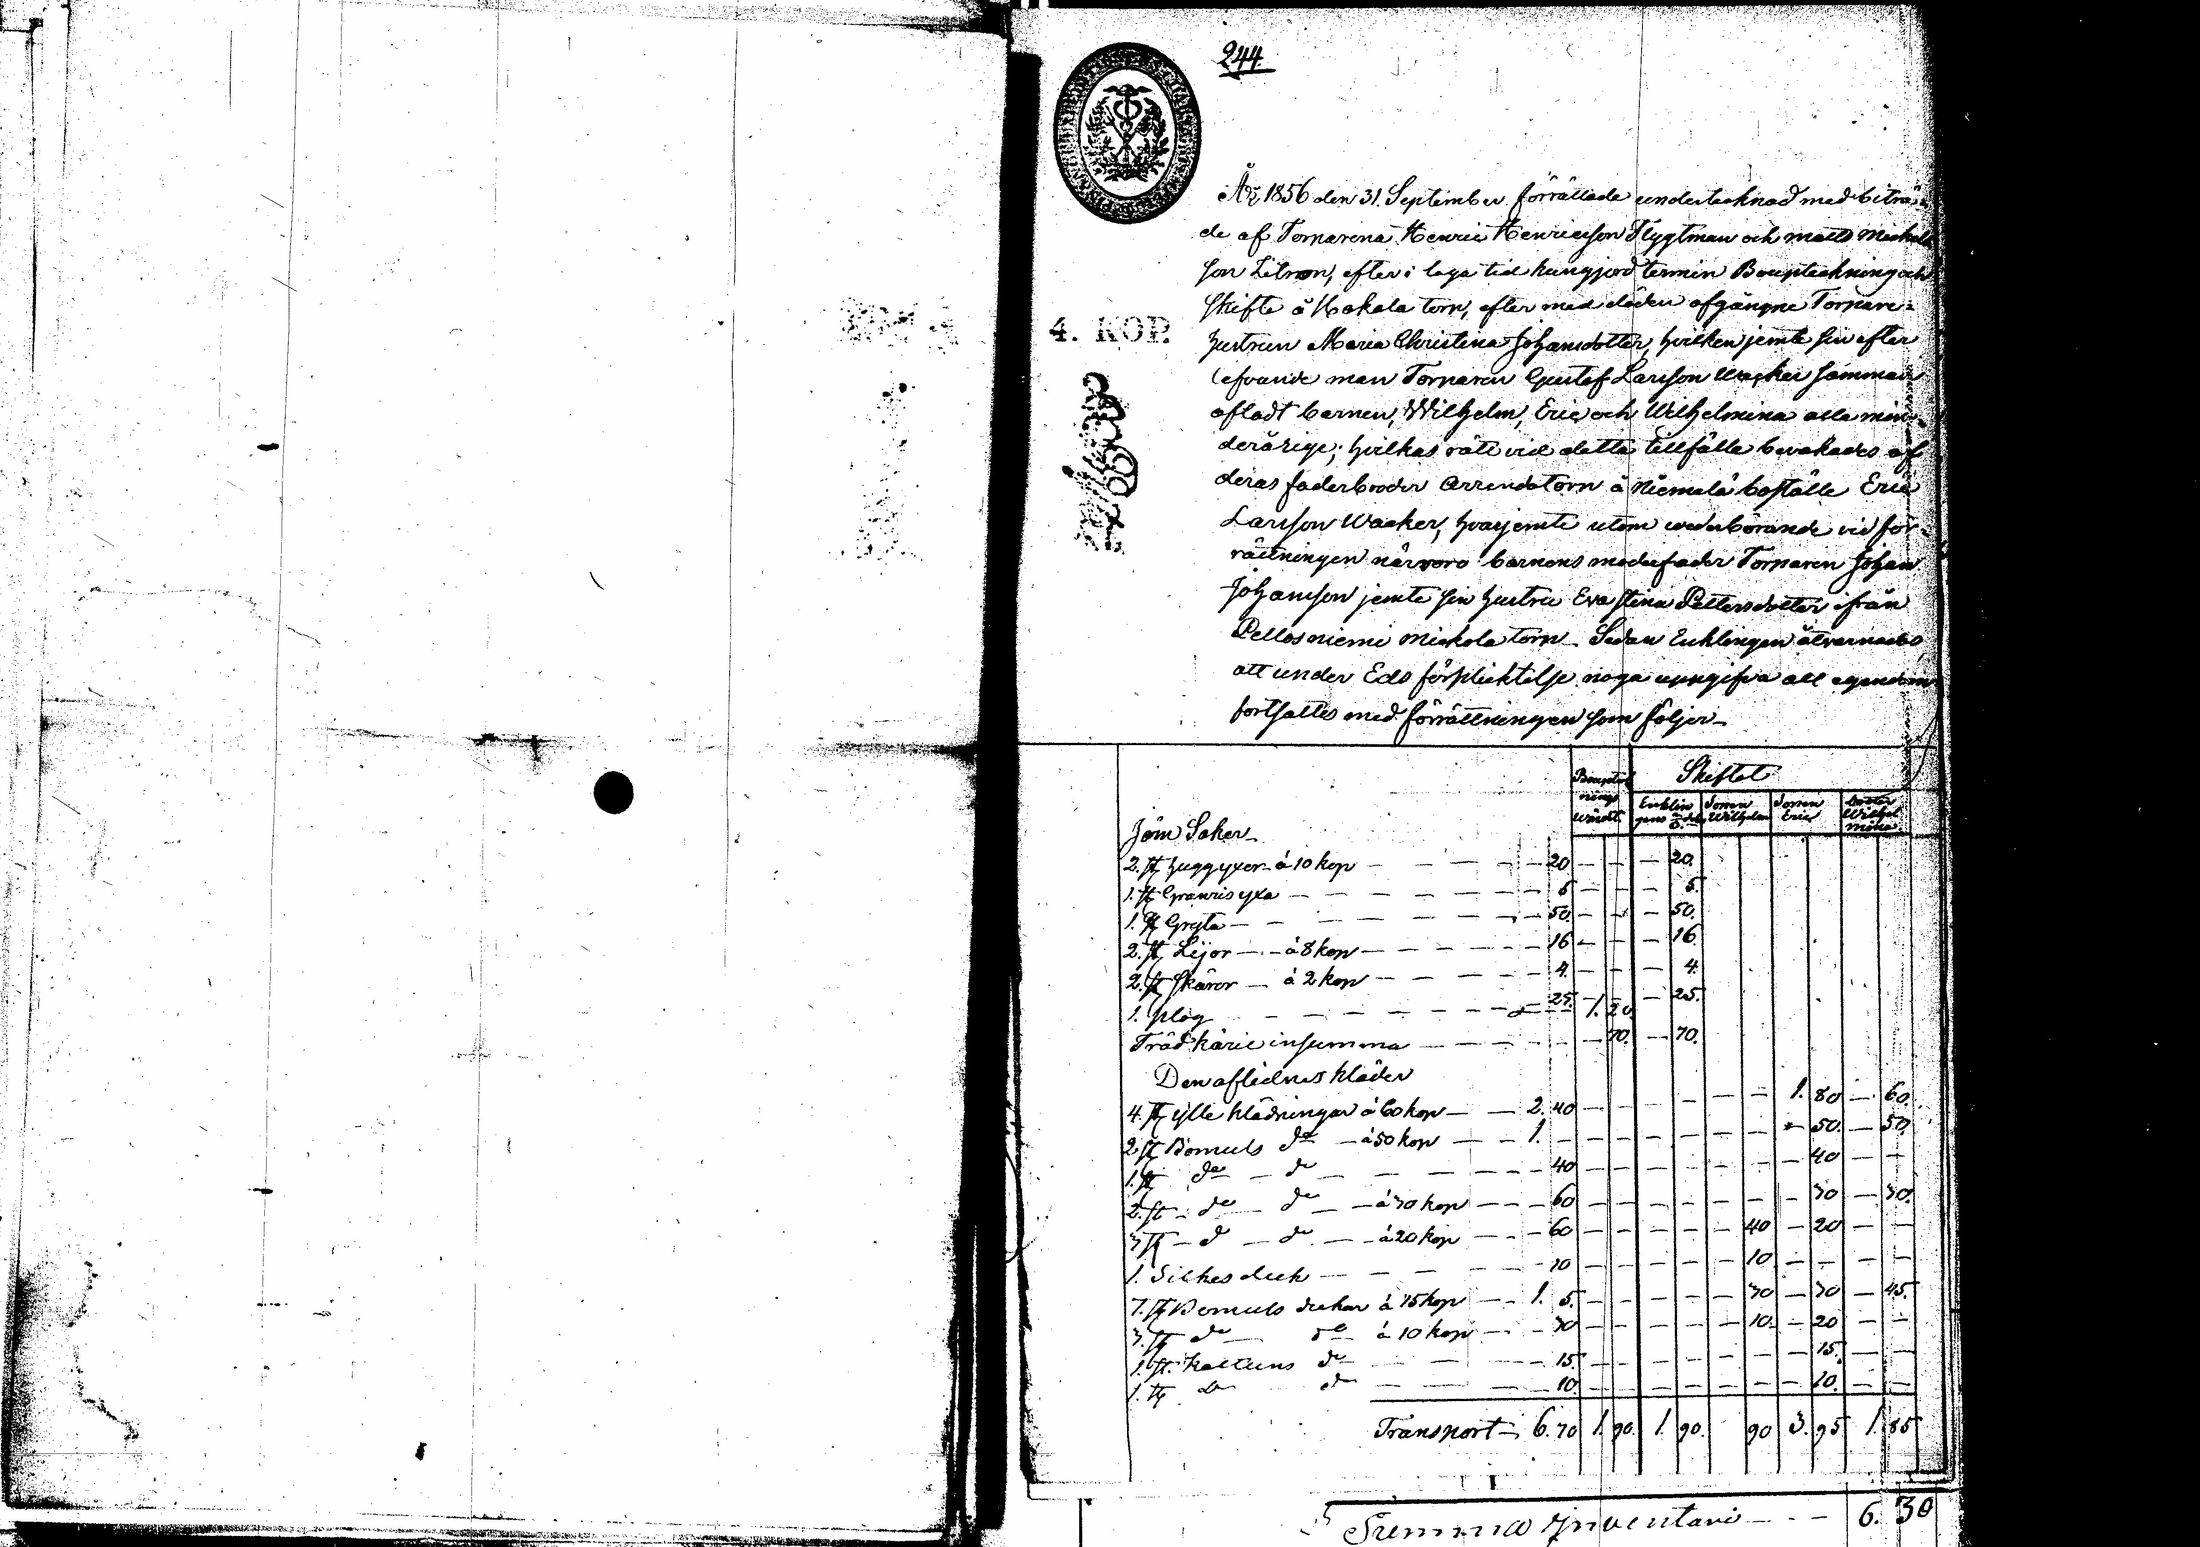 244.
År 1856 den 31. September förrättade undertecknad med biträ-
de af Torparena Henric Henricsson Flygtman och Matts Mickels
son Litmon, efter i laga tid kungjord termin Bouptekning och
skifte å Kokala torp, efter med döden afgångne Torpare-
hustrun Maria Christina Johansdotter, hvilken jemte sin efter
lefvande man Torparen Gustaf Larsson Wacker samman
afladt barnen, Wilhelm, Eric och Wilhelmina alla min-
derårige; hvilkas rätt vid detta tillfälle bevakades af
deras faderbroder Arrendatorn å Niemelä boställe Eric
Larsson Wacker, hvarjemte utom wederbörande vid för-
rättningen närvoro barnens moderfader Torparen Johan
Johansson jemte sin hustru Eva Stina Pettersdotter från
Pellosniemi Mickola torp. Sedan Enklingen åtvarnades
att under Eds förpliktelse noga uppgifva all egendom
fortsattes med förrättningen som följer
4. KOP.
Skiftet
Bouptek
nings
wärdet
Enklin
gens
Sonen
Wilhelm
Sonen
Eric
Dotter
Wilhel
mina
Järn Saker
2. st huggyxor à 10 kop — 20 — 20.
1. st Granris yxa — 5 — 5.
1. st Gryta — 50. — 50.
2. st Lijor — à 8 kop — 16 — 16.
2. st Skäror — à 2 kop — 4. — 4.
1. plog — 25. 1.20 — 25.
Träd käril in summa — 70. — 70.
Den aflidnes kläder
4. st ylle klädningar à 60 kop — 2.40 — 1.80 — 60.
2 st Bomuls do — à 50 kop — 1. — 50. — 50.
1. st do do — 40 — 40 —
2. st do do — à 30 kop — 60 — 30 — 30.
3 st do do — à 20 kop — 60 — 40 — 20 —
1. Silkes duk — 10 — 10 —
7. st Bomuls dukar à 15 kop — 1. 5. — 30 — 30 — 45.
3. st do do à 10 kop — 30 — 10. — 20 —
1. st. Kattuns do — 15. — 15. —
1. st do do — 10. — 10. —
Transport 6.70 1.90. 1.90. 90 3.95 1.85
Summa Inventari — 6.30